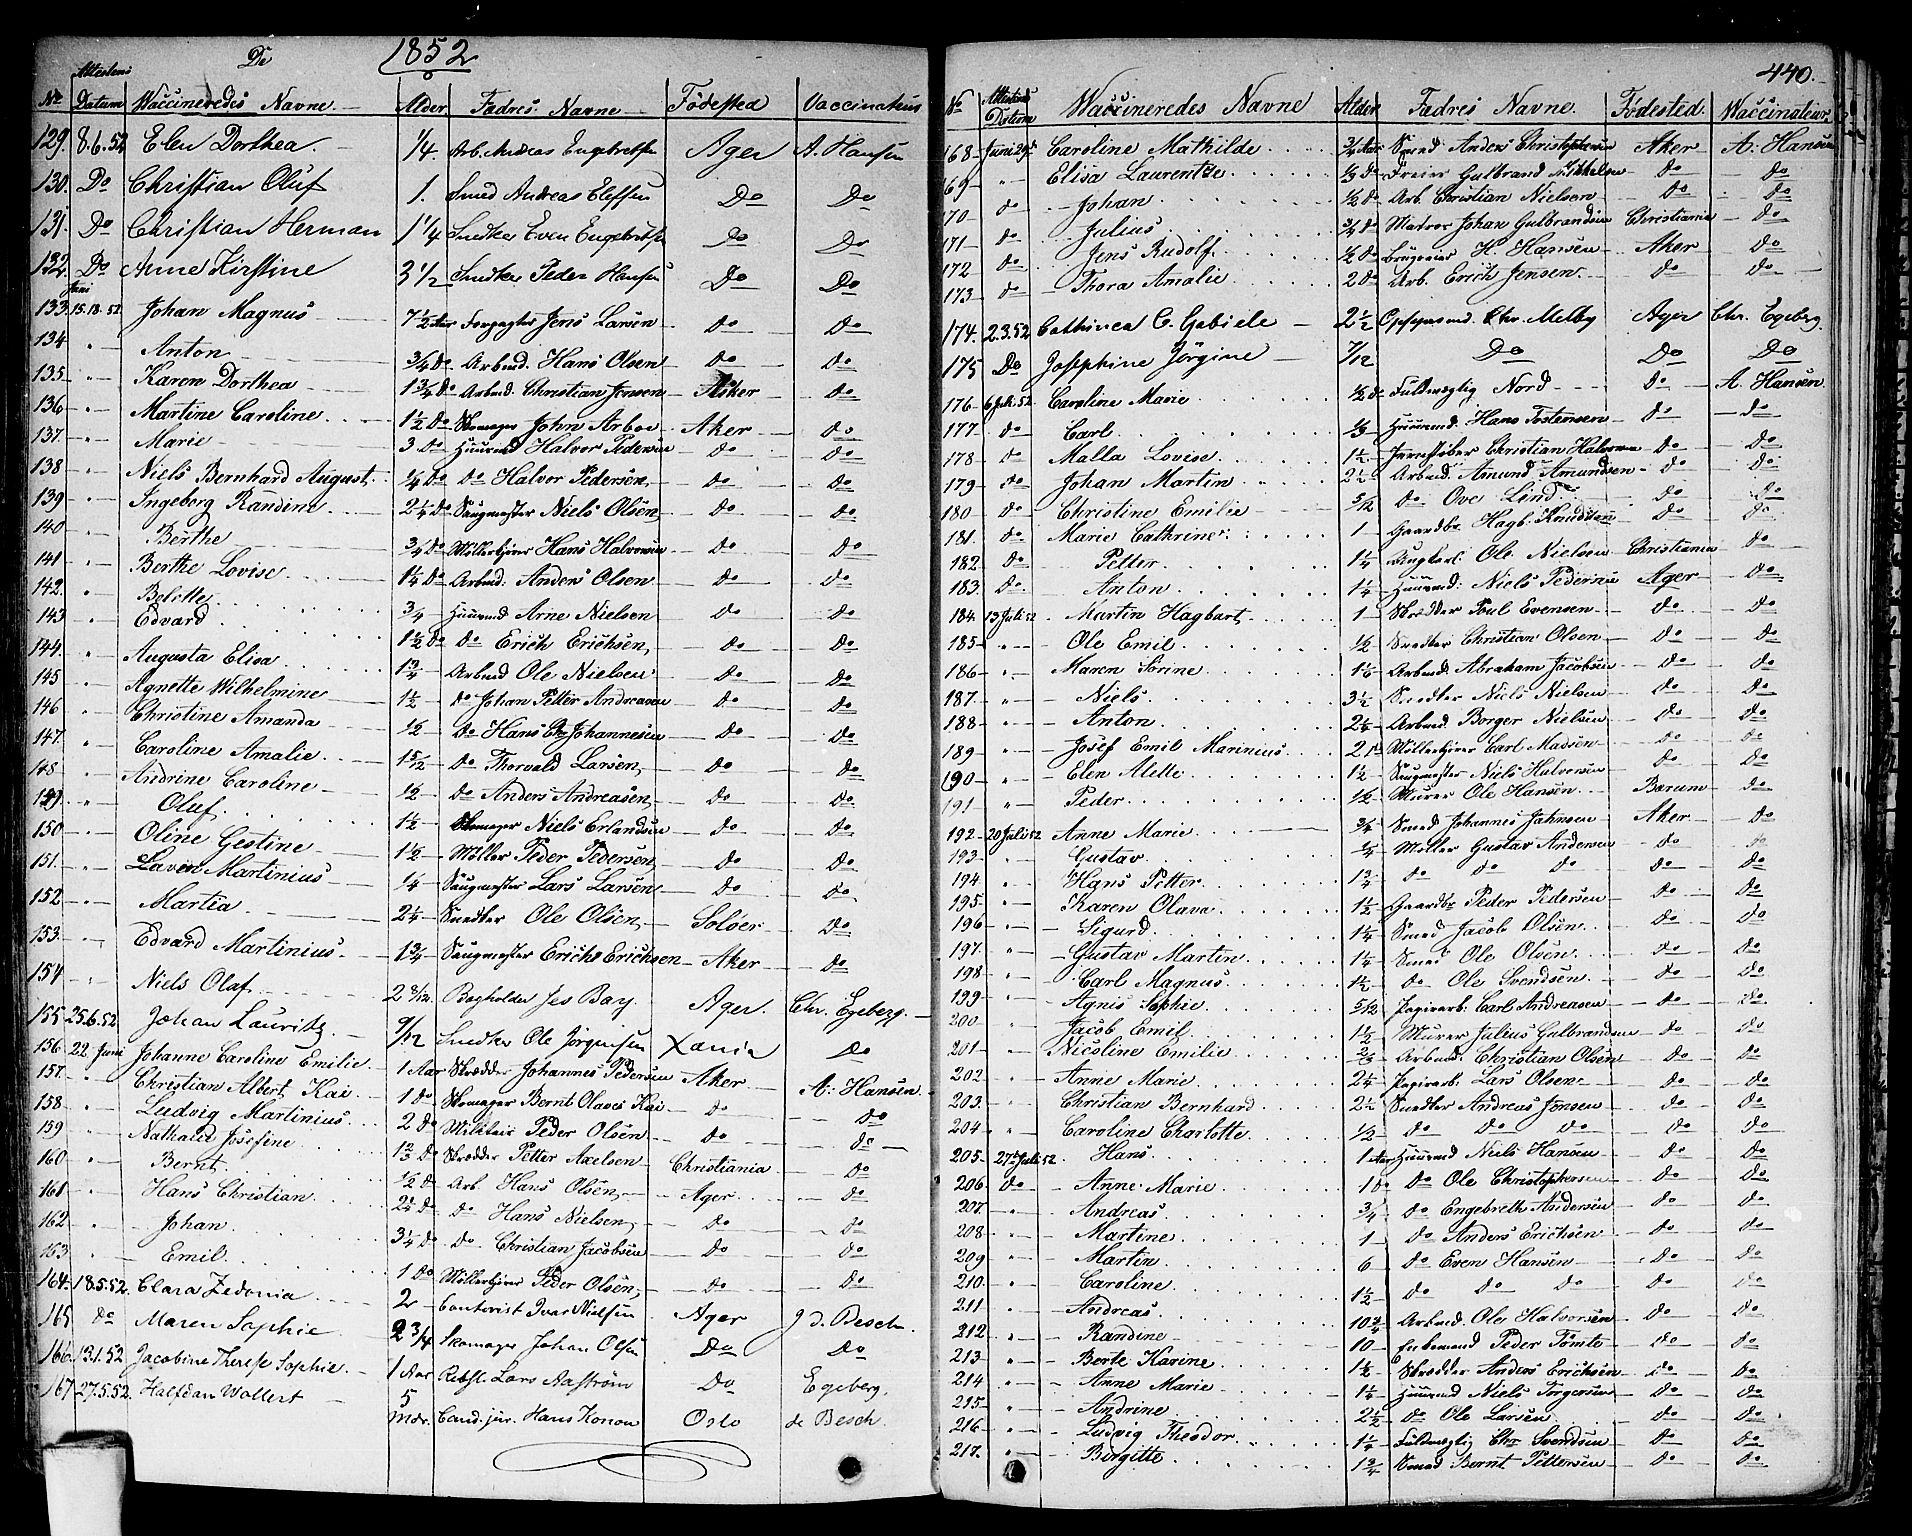 1852
De
Attestens
No Datum Waccineredes Navne. Alder Fadres Navne Fødested Vaccinateur
129. 8.6.52 Elen Dorthea 1/4. Arb. Andreas Engebretsen Ager A. Hansen
130. Do Christian Oluf 1. Smed Andreas Ellefsen Do Do
131. Do Christian Herman 1 1/4 Snedker Even Engebretsen Do Do
132. Do Anne Kirstine 3 1/2 Snedker Peder Hansen Do Do
Juni
133. 15.18.52 Johan Magnus 7 1/2 Aar Forpagter Jens Larsen Do Do
134 " Anton 3/4 Do Arbmd. Hans Olsen Do Do
135. " Karen Dorthea 1 3/4 Do Arbmd Christian Jensen Asker Do
136 " Martine Caroline 1 1/2 Do Skomager John Arboe Aker Do
137. " Marie 3 Do Huusmd Halvor Pedersen Do Do
138 " Niels Bernhard August 1/4 Do Do Halvor Pedersen Do Do
139 " Ingeborg Randine 2 1/4 Do Saugmester Niels Olsen Do Do
140 " Berthe 3/4 Do Møllersvend Hans Halvorsen Do Do
141 " Berthe Lovise 1 1/4 Do Arbmd: Anders Olsen Do Do
142. " Belette 3/4 Huusmd Arne Nielsen Do Do
143 " Edvard 1 1/2 Do Do Erich Erichsen Do Do
144. " Augusta Elisa 1 3/4 Arbmd Ole Nielsen Do Do
145 " Agnette Wilhelmine 1 1/2 Do Johan Petter Andreasen Do Do
146 " Christine Amanda 1/2 Do Hans Chr. Johannesen Do Do
147. " Caroline Amalie 1 5/12 Do Thorvald Larsen Do Do
148 " Andrine Caroline 1/2 Do Anders Andreasen Do Do
149. " Oluf 1 1/2 Skomager Niels Erlandsen Do Do
150 " Oline Gestine 1 1/2 Møller Peder Pedersen Do Do
151. " Laven Martinius 1/4 Saugmester Lars Larsen Do Do
152 " Martia 2 1/4 Snedker Ole Olsen Soløer Do
153. " Edvard Martinius 1 3/4 Saugmester Erich Erichsen Aker Do
154 " Niels Olaf 2 8/12. Bogholder Jes Bay Ager. Chr. Egeberg.
155 25.6.52 Johan Lauritz 9/12 Snedker Ole Jørgensen Xania Do
156. 22 Juni Johanne Caroline Emilie 1 Aar Skrædder Johannes Pedersen Aker A: Hansen
157. " Christian Albert Kai 1 Do Skomager Bernt Olaves Kai Do Do
158 " Ludvig Martinius 2 Do Militair Peder Olsen Do Do
159 " Nathalie Josefine 1 2/3 Do Skrædder Petter Axelsen Christiania Do
160 " Bernt 1/2 Do Arb. Hans Olsen Ager Do
161 " Hans Christian Do Do Hans Nielsen Do Do
162 " Johan 3 1/4 Do Do Christian Jacobsen Do Do
163 " Emil 1 Do Møllersvend Peder Olsen Do Do
164. 18.5.52. Clara Zedonia 2 Contorist Ivar Nielsen Ager J d. Besche
165 Do Maren Sophie 2 3/4 Skomager Johan Olsen Do Do
166. 13.1.52 Jacobine Therese Sophie 1 Aar Rebsl. Lars Aastrøm Do Egeberg.
167 27.5.52. Halfdan Wollert 5 Mdr. Cand. jur. Hans Konow Oslo de Besch.
440.
No Attestens Datum Waccineredes Navne Alder Fadres Navne. Fødested. Waccinateur.
168 Juni 29 Caroline Mathilde 3/4 Aar Smed Anders Christophersen Aker A: Hansen
169 " Elisa Laurentze Do Gulbrand Mikkelsen Do Do
170 Do Johan 1/2 Do Arb. Christian Nielsen Do Do
171 Do Julius 3/4 Do Matros Johan Gulbrandsen Christiania Do
172 Do Jens Rudolf 1/2 Do Brugseier H. Hansen Aker Do
173 Do Thora Amalie 2 Do Arb. Erich Jensen Do Do
174. 2.3.52 Cathinca C. Gabiele 2 1/2 Opsynsmd. Chr. Melby Ager Chr. Egeberg.
175 Do Josephine Jørgine 7/12 Do Do Do
176 6 Juli 52 Caroline Marie 1/2 Do Fuldmægtig Nord Do A. Hansen
177 Do Carl 1/3 Huusmd. Hans Tostensen Do Do
178 Do Malla Lovise 1 1/2 Jernstøber Christian Halvorsen Do Do
179 Do Johan Martin 2 1/2 Arbmd. Amund Amundsen Do Do
180 Do Christine Emilie 5/12 Do Ove Lind Do Do
181. Do Marie Cathrine 1 Gaardbr Hagb. Knudsen Do Do
182. Do Petter 1 1/4 Ole Nielsen Christiania Do
183. Do Anton 1 1/4 Huusmd: Niels Pedersen Ager Do
184 13 Juli 52 Martin Hagbart 1 Skrædder Poul Evensen Do Do
185 " Ole Emil 1/2 Snedker Christian Olsen Do Do
186 " Maren Sørine Arbmd. Abraham Jacobsen Do Do
187. " Niels 3 1/2 Snedker Niels Nielsen Do Do
188 " Anton 2 1/4 Arbmd. Borger Nielsen Do Do
189 " Josef Emil Marinius 2 Møllersvend Carl Madsen Do Do
190 " Elen Alette 1 1/2 Saugmester Niels Halvorsen Do Do
191 " Peder 1/2 Murer Ole Hansen Bærum Do
192. 20 Juli 52 Anne Marie 3/4 Smed Johannes Jahnsen Aker Do
193 " Gustav 3/4 Møller Gustav Andersen Do Do
194 " Hans Petter 1 3/4 Do Do Do Do Do
195 " Karen Olava 1 1/2 Gaardbr Peder Pedersen Do Do
196 " Sigurd 1 1/4 Smed Jacob Olsen Do Do
197. " Gustav Martin 1 1/4 Smed Ole Olsen Do Do
198 " Carl Magnus 1 1/2 Do Ole Svendsen Do Do
199 " Agnis Sophie 5/12 Papirarb. Carl Andreasen Do Do
200 " Jacob Emil 1 1/2 Murer Julius Gulbrandsen Do Do
201 " Nicoline Emilie 2/3 Arbmd. Christian Olsen Do Do
202. " Anne Marie 2 1/4 Papirarb. Lars Olsen Do Do
203. " Christian Bernhard 2 1/2 Snedker Andreas Jensen Do Do
204 " Caroline Charlotte 1/2 Do Do Do Do Do
205 27 Juli 52. Hans 1 Aar Huusmd Niels Hansen Do Do
206 Do Anne Marie 1 Do Do Ole Christophersen Do Do
207 " Andreas 3/4 Do Engebreth Andersen Do Do
208 " Martine 1 Do Anders Erichsen Do Do
209 " Martin 6 Do Even Hansen Do Do
210. " Caroline 1 1/2 Do Do Do Do Do
211 " Andreas 10 3/4 Arbmd. Ole Halvorsen Do Do
212 " Randine 10 Peder Tomte Do Do
213 " Berte Karine 1 1/2 Skrædder Anders Erichsen Do Do
214 " Anne Marie 1 1/4 Huusmd Niels Torgersen Do Do
215 " Andrine 2 1/2 Do Ole Larsen Do Do
216 " Ludvig Theodor 1 1/4 Fuldmægtig Chr Svendsen Do Do
217. " Birgitte 1 3/4 Smed Bernt Pettersen Do Do